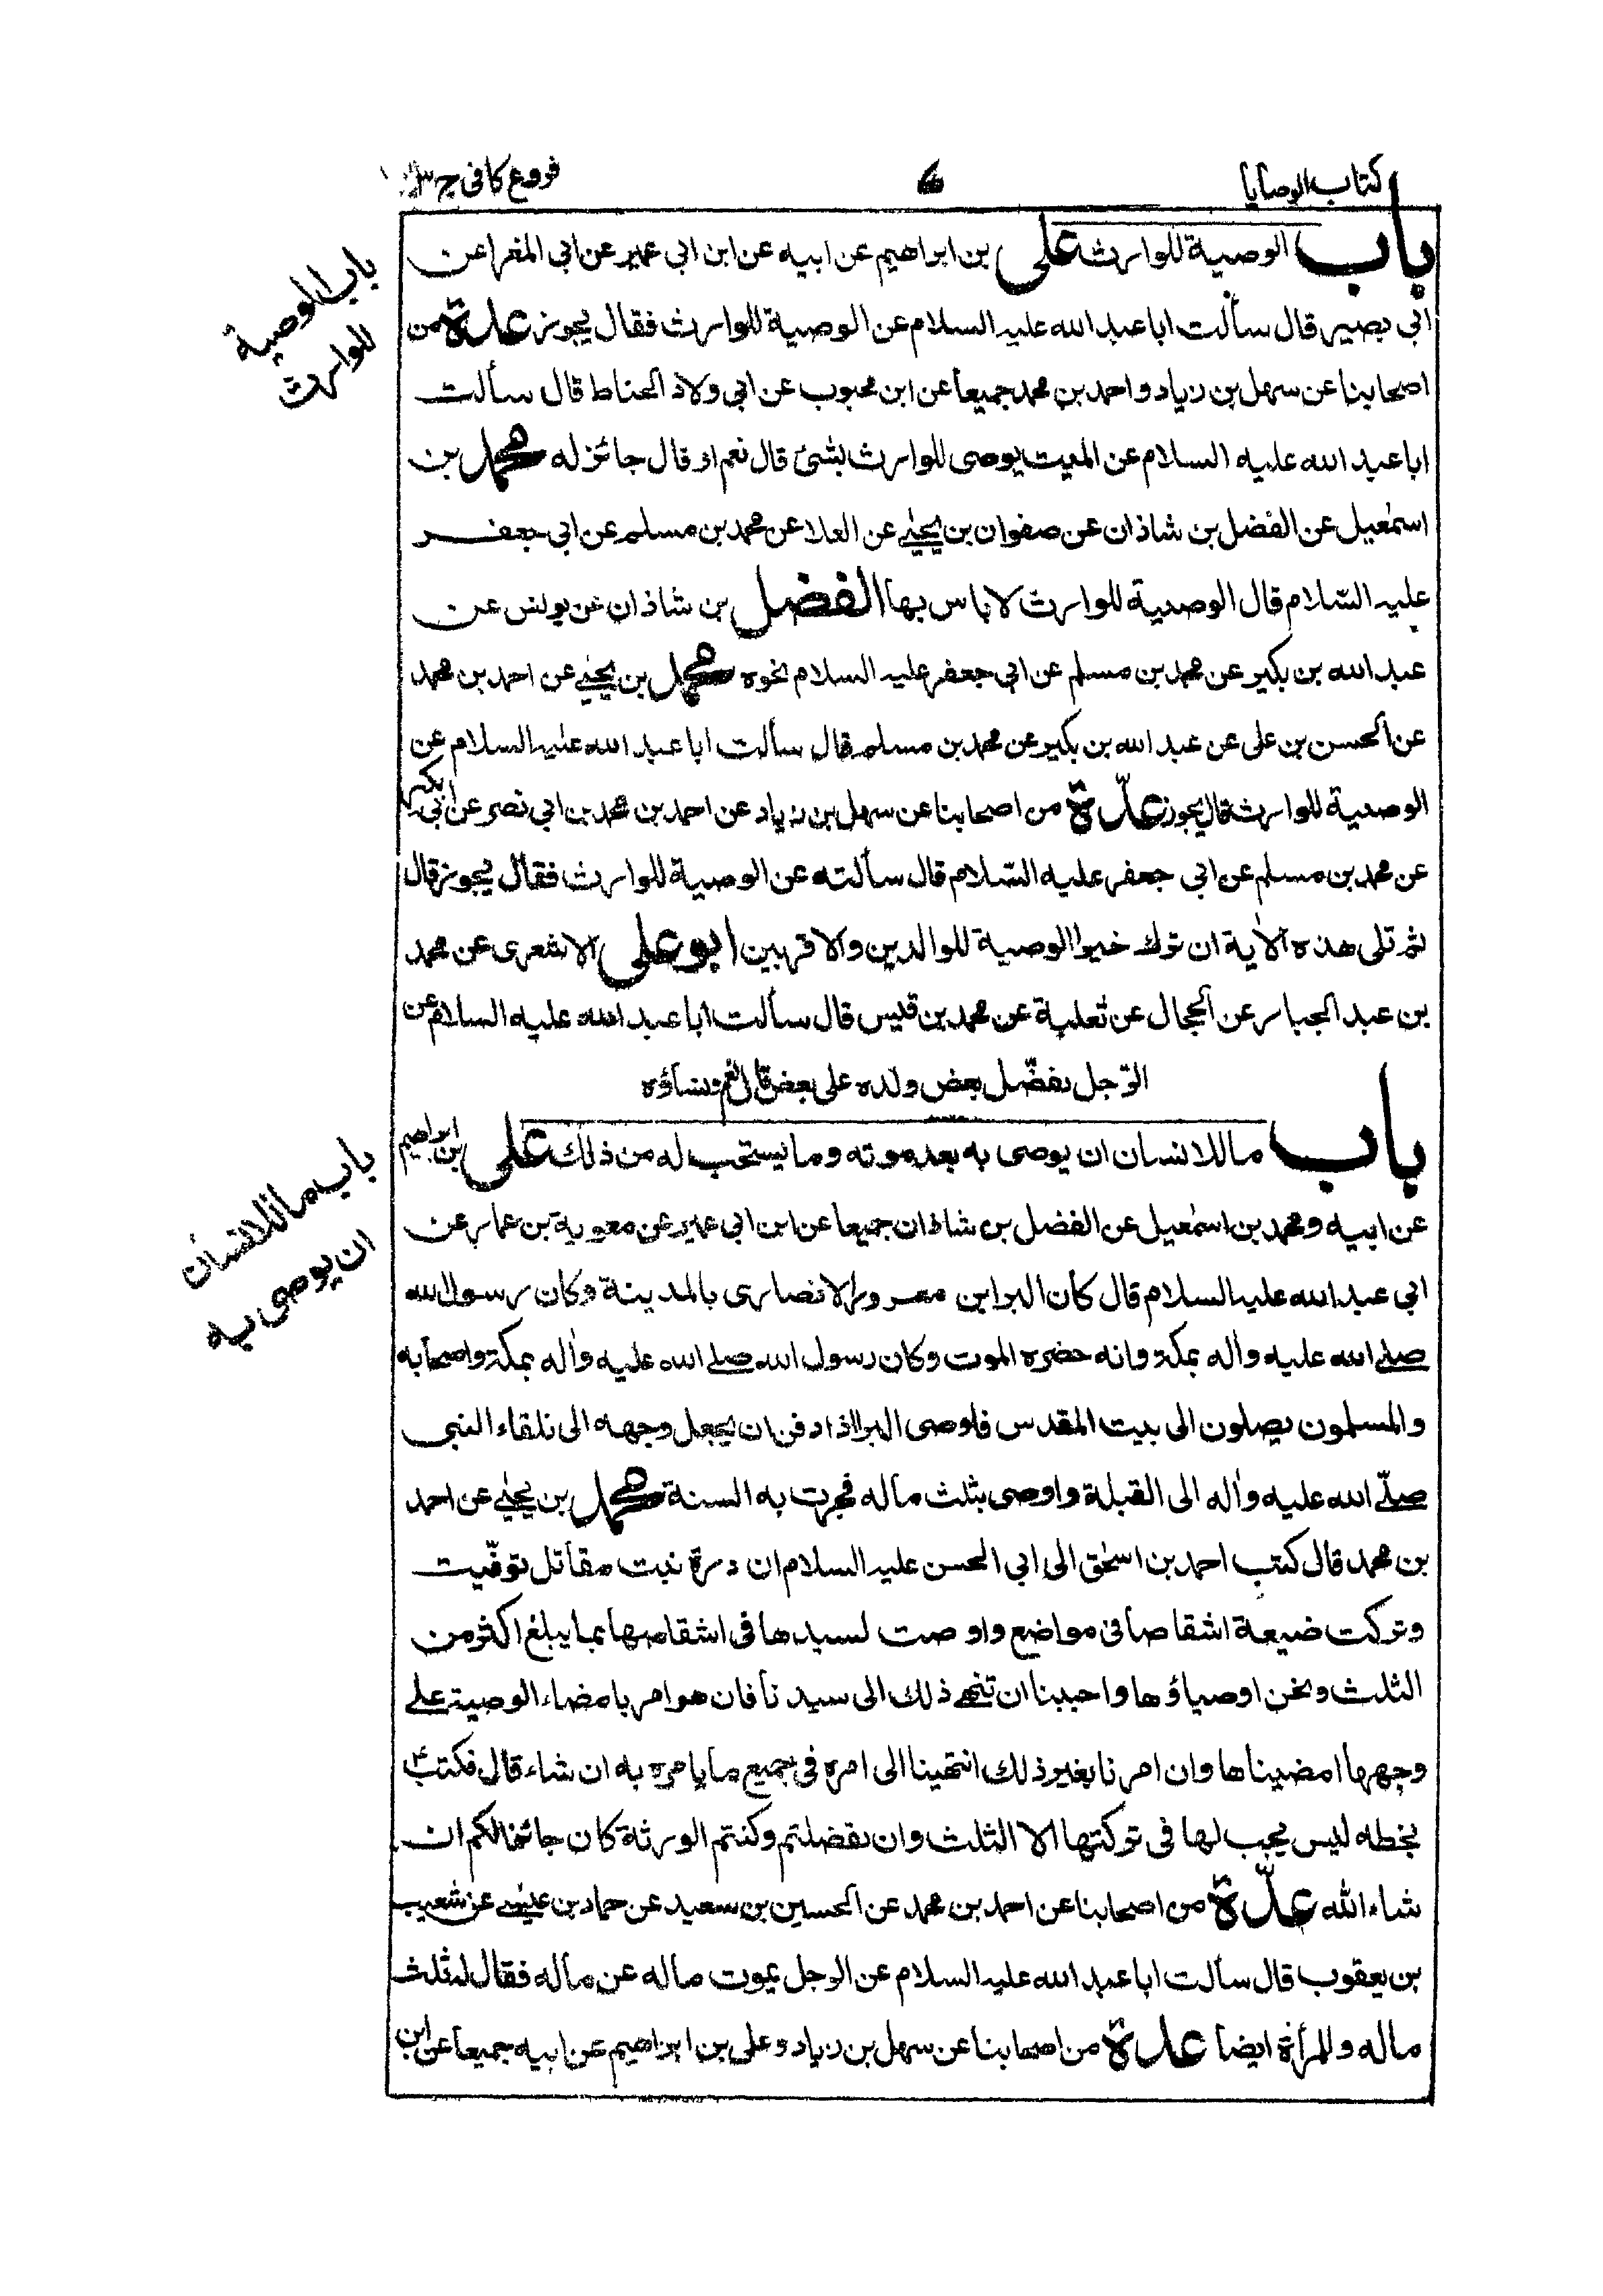 كتاب الوصايا
٤
فروع كافى ج ٣
باب الوصية للوارث على بن ابراهيم عن ابيه عن ابن ابى عمير عن ابى المغرا عن
ابى بصير قال سألت ابا عبد الله عليه السلام عن الوصية للوارث فقال يجوز عدة من
اصحابنا عن سهل بن زياد واحمد بن محمد جميعا عن ابن محبوب عن ابى ولاد الحناط قال سألت
ابا عبد الله عليه السلام عن الميت يوصى للوارث بشئ قال نعم او قال جائز له محمد بن
اسمعيل عن الفضل بن شاذان عن صفوان بن يحيى عن العلا عن محمد بن مسلم عن ابى جعفر
عليه السلام قال الوصية للوارث لا باس بها الفضل بن شاذان عن يونس عن
عبد الله بن بكير عن محمد بن مسلم عن ابى جعفر عليه السلام نحوه محمد بن يحيى عن احمد بن محمد
عن الحسن بن على عن عبد الله بن بكير عن محمد بن مسلم قال سألت ابا عبد الله عليه السلام عن
الوصية للوارث قال يجوز عدّة من اصحابنا عن سهل بن زياد عن احمد بن محمد بن ابى نصر عن ابن بكير
عن محمد بن مسلم عن ابى جعفر عليه السّلام قال سألته عن الوصية للوارث فقال يجوز قال
ثم تلى هذه الآية ان ترك خيرا الوصية للوالدين والاقربين ابو على الاشعرى عن محمد
بن عبد الجبار عن الحجال عن ثعلبة عن محمد بن قيس قال سألت ابا عبد الله عليه السلام عن
الرّجل يفضّل بعض ولده على بعض قال نعم ونساؤه
باب ما للانسان ان يوصى به بعد موته وما يستحب له من ذلك على بن ابراهيم
عن ابيه ومحمد بن اسمعيل عن الفضل بن شاذان جميعا عن ابن ابى عمير عن معوية بن عمار عن
ابى عبد الله عليه السلام قال كان البرا بن معرور الانصارى بالمدينة وكان رسول الله
صلى الله عليه وآله بمكة وانه حضره الموت وكان رسول الله صلى الله عليه وآله بمكة واصحابه
والمسلمون يصلون الى بيت المقدس فاوصى البرا اذا دفن ان يجعل وجهه الى تلقاء النبى
صلّى الله عليه وآله الى القبلة واوصى بثلث ماله فجرت به السنة محمد بن يحيى عن احمد
بن محمد قال كتب احمد بن اسحق الى ابى الحسن عليه السلام ان درة بنت مقاتل توفّيت
وتركت ضيعة اشقاصا فى مواضع واوصت لسيدها فى اشقاصها بما يبلغ اكثر من
الثلث ونحن اوصياؤها واحببنا ان ننهى ذلك الى سيدنا فان هو امر بامضاء الوصية على
وجهها امضيناها وان امرنا بغير ذلك انتهينا الى امره فى جميع ما يامره به ان شاء قال فكتب ع
بخطه ليس يجب لها فى تركتها الا الثلث وان تفضلتم وكنتم الورثة كان جائزا لكم ان
شاء الله عدّة من اصحابنا عن احمد بن محمد عن الحسين بن سعيد عن حماد بن عيسى عن شعيب
بن يعقوب قال سألت ابا عبد الله عليه السلام عن الرجل يموت ماله عن ماله فقال له ثلث
ماله وللمرأة ايضا عدة من اصحابنا عن سهل بن زياد وعلى بن ابراهيم عن ابيه جميعا عن ابن
باب الوصية
للوارث
باب ما للانسان
ان يوصى به